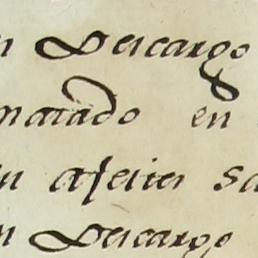 n Descargo
matado en
n afeites sa
n Descargo